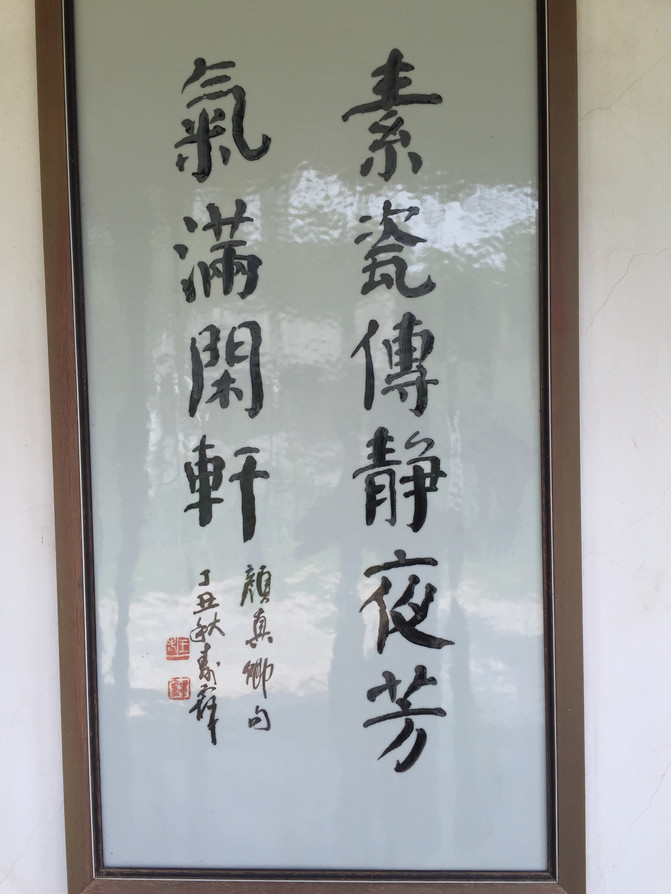 素瓷傳静夜芳
氣滿閑軒
顔真卿句
丁丑秋